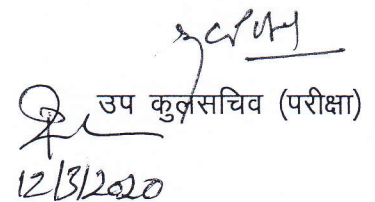 उप कुलसचिव (परीक्षा)
12/3/2020